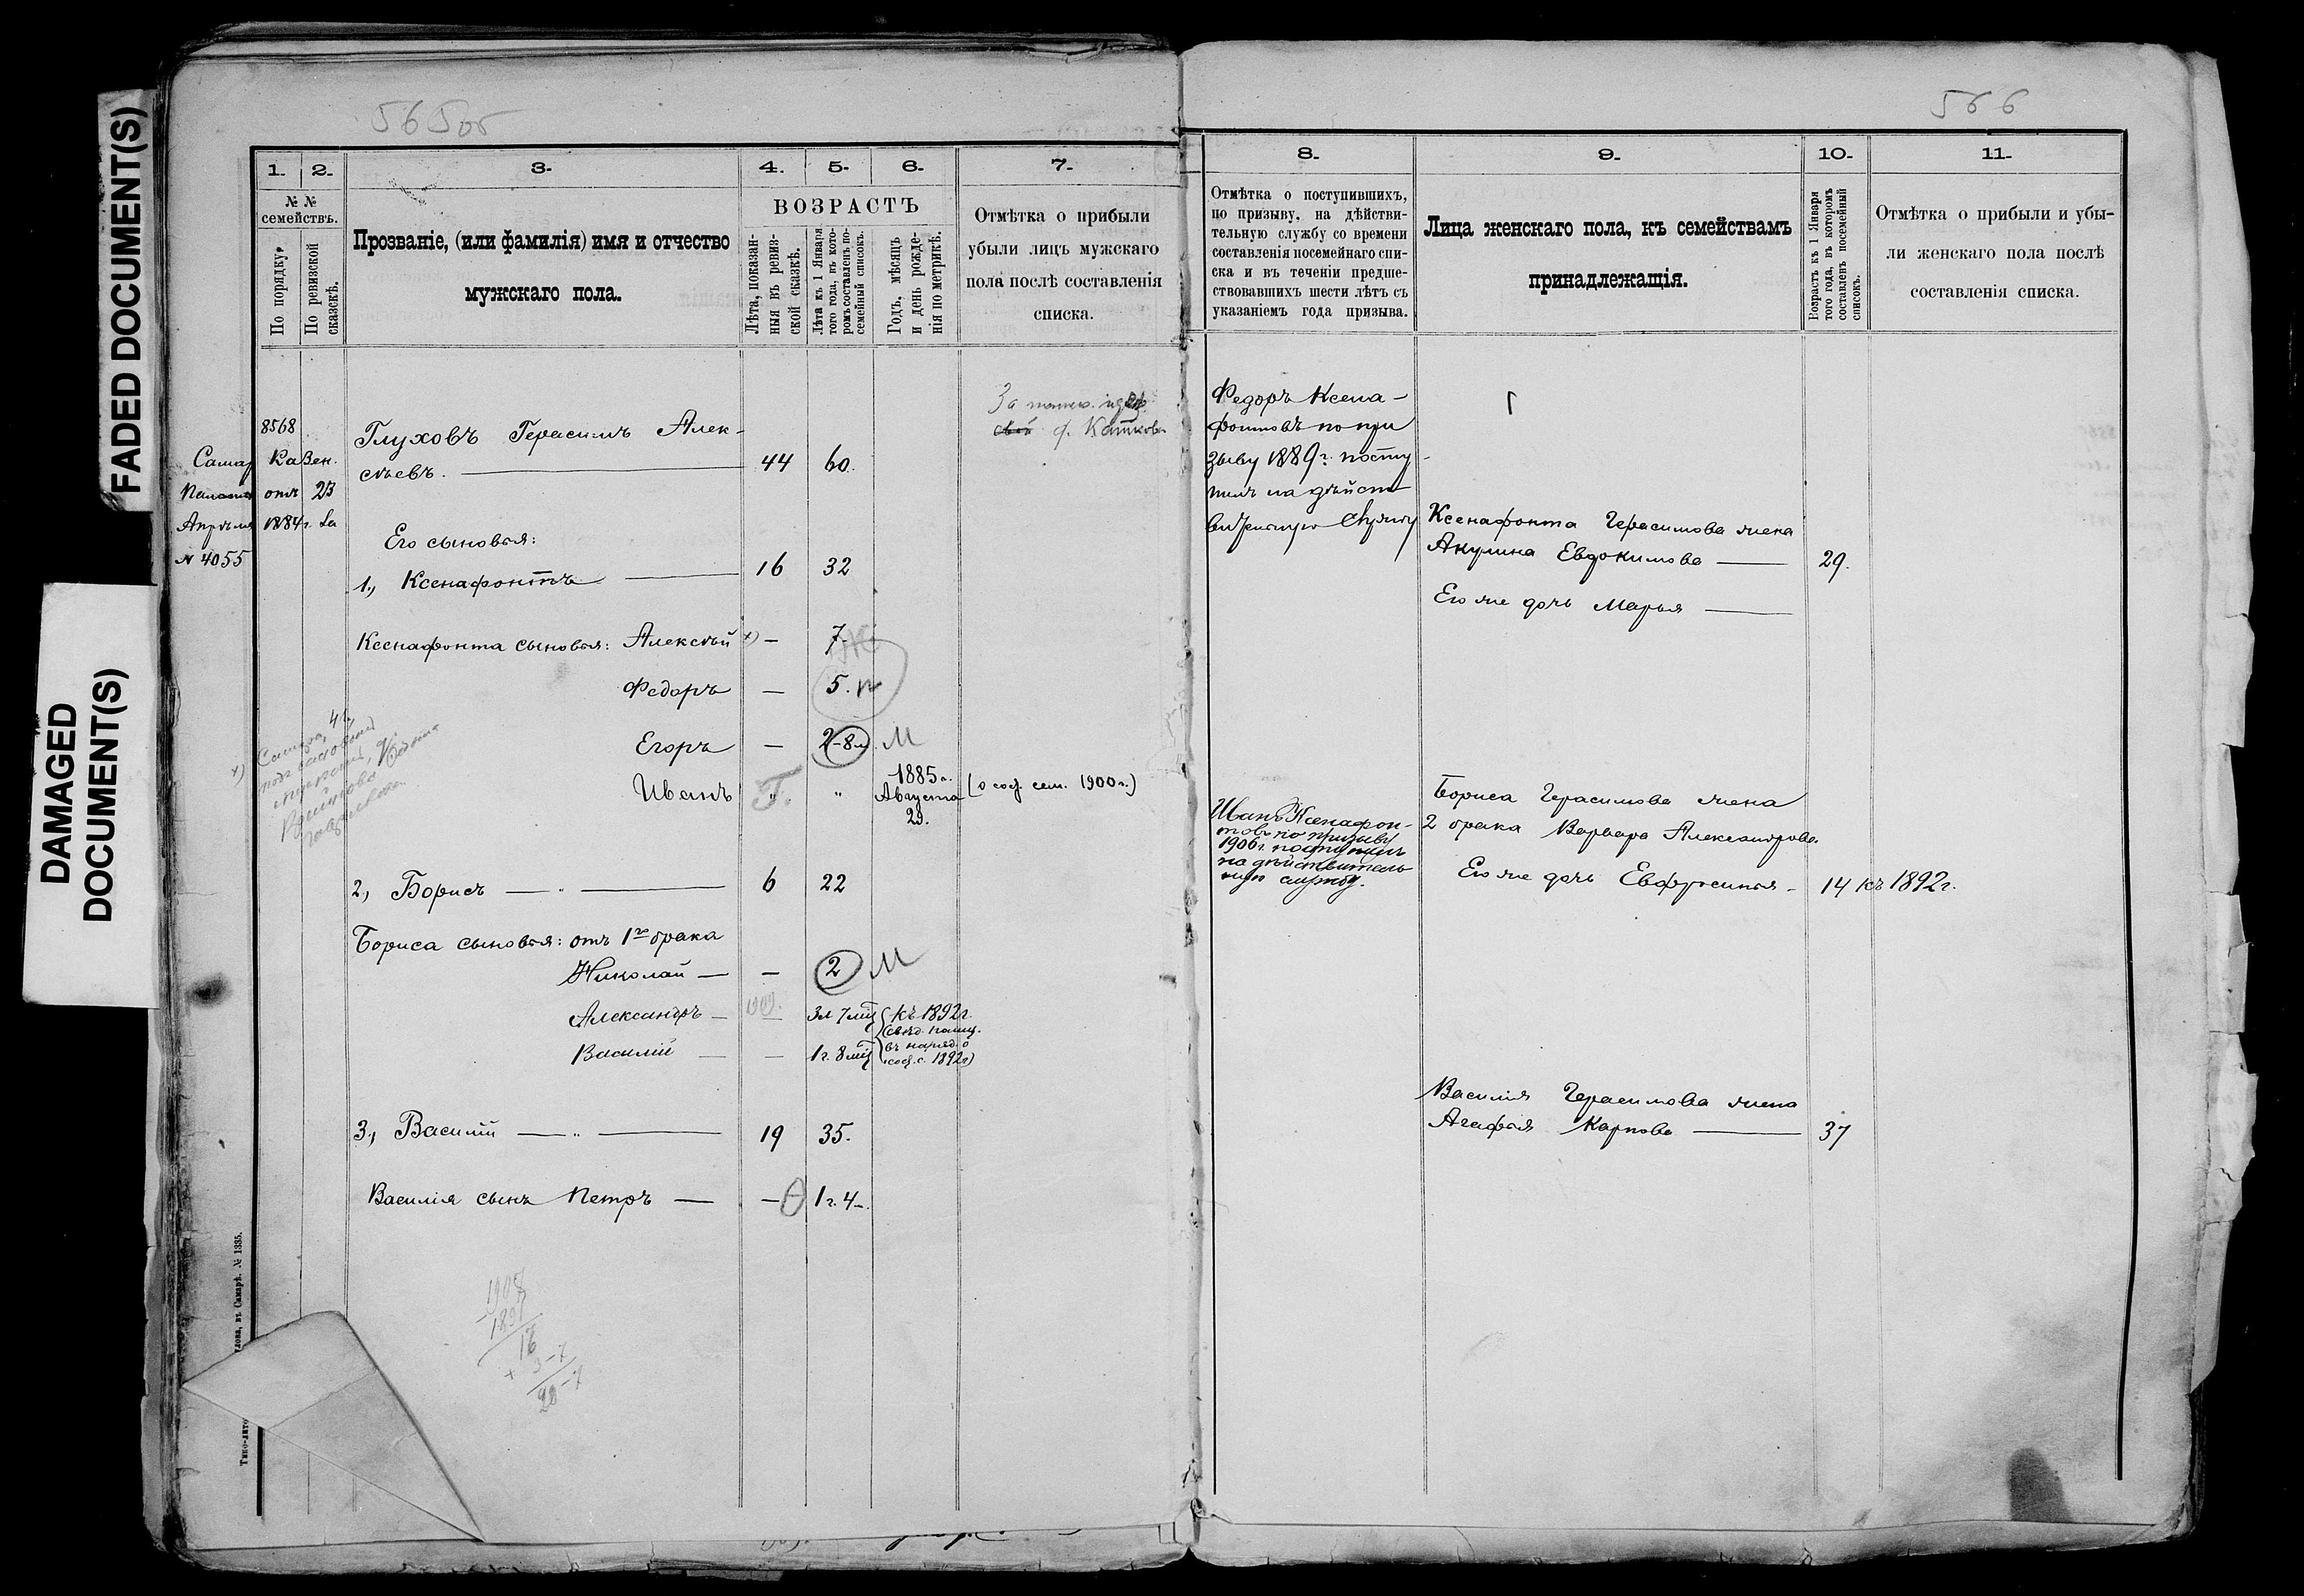 FADED DOCUMENT(S)
DAMAGED
DOCUMENT(S)
565об
1.
2.
3.
4.
5.
6.
7.
№ №
семействъ.
По порядку.
По ревизской
сказкѣ.
Прозваніе, (или фамилія) имя и отчество
мужскаго пола.
ВОЗРАСТЪ
Лѣта, показан-
ныя въ ревиз-
ской сказкѣ.
Лѣта къ 1 Января
того года, въ кото-
ромъ составленъ по-
семейный списокъ.
Годъ, мѣсяцъ
и день рожде-
нія по метрикѣ.
Отмѣтка о прибыли
убыли лицъ мужскаго
пола послѣ составленія
списка.
8568
Самар Казен.
Палаты отъ 23
Апрѣля 1884 г. за
№ 4055
Глуховъ Герасимъ Алек-
сѣевъ. 44 60.
Его сыновья:
1., Ксенафонтъ 16 32
Ксенафонта сыновья: Алексѣй х) — 7.
Федоръ — 5.
Егоръ — 2-8м. М
Иванъ Г. „ 1885 г.
Августа
29.
(о соф. сем. 1900 г.)
х) Самара, 4 ч.
2, Борисъ — „ — 6 22
Бориса сыновья: отъ 1го брака
Николай — — 2 М
Александръ — — 3л 7мц
Василій — — 1 г. 8мц
(къ 1892 г.
въ наряд. о
1892 г)
1909.
3., Василій — „ — 19 35.
Василія сынъ Петръ — — 1 г. 4
1908
1892
16
+ 3-7
20-7
въ Самарѣ. № 1335.
566
8.
9.
10.
11.
Отмѣтка о поступившихъ,
по призыву, на дѣйстви-
тельную службу со времени
составленія посемейнаго спи-
ска и въ теченіи предше-
ствовавшихъ шести лѣтъ съ
указаніемъ года призыва.
Лица женскаго пола, къ семействамъ
принадлежащія.
Возрастъ къ 1 Января
того года, въ которомъ
составленъ посемейный
списокъ.
Отмѣтка о прибыли и убы-
ли женскаго пола послѣ
составленія списка.
Федоръ Ксена-
фонтовъ по при
зыву 1889 г. посту-
пилъ на дѣйст
вительную службу
Ксенафонта Герасимова жена
Акулина Евдокимова — 29.
Его же дочь Марья —
Иванъ Ксенафон-
товъ по призыву
1906 г. поступилъ
на дѣйствитель
ную службу.
Бориса Герасимова жена
2 брака Варвара Александрова.
Его же дочь Евфросинья — 14 къ 1892 г.
Василія Герасимова жена
Агафья Карпова — 37